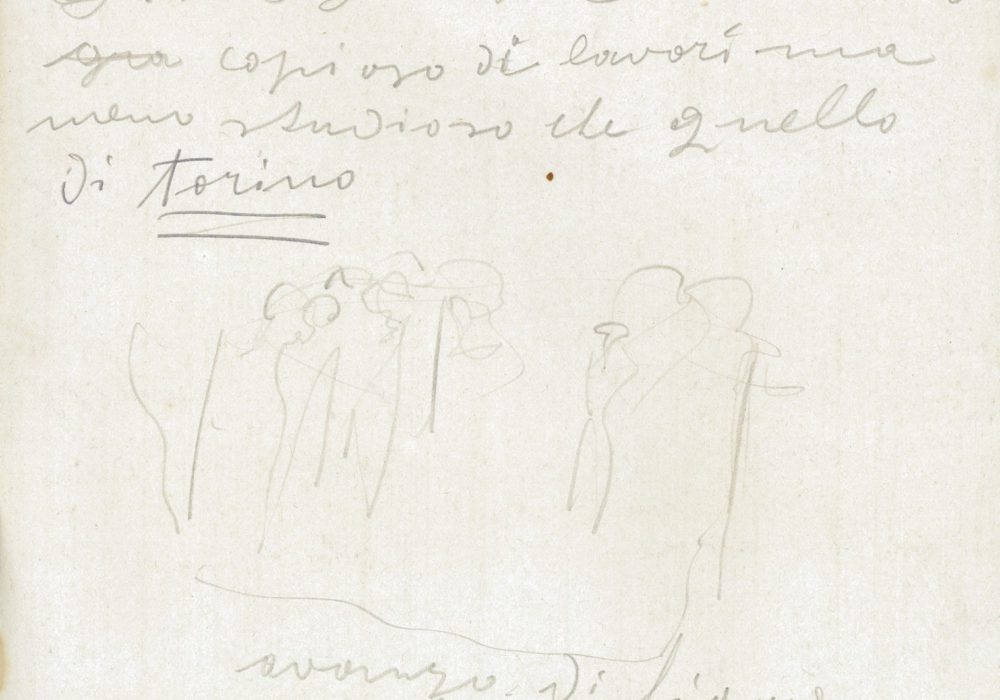 copioso di lavori ma
meno studioso che quello
di torino
avanzo di